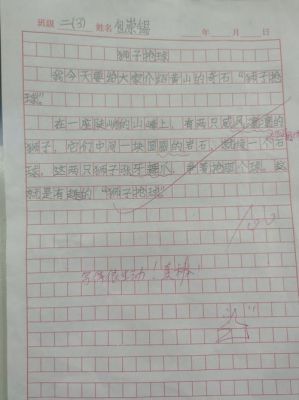 班级 二(3) 姓名 包崇锡 年 月 日
狮子抢球
我今天要给大家介绍黄山的奇石“狮子抢
球”。
在一座陡峭的山峰上，有两只威风凛凛的
狮子，它们中间一块圆圆的岩石，就像一个石
球，这两只狮子张牙舞爪，争着抢那个球。这
就是有趣的“狮子抢球”
100
写得很生动！真棒！